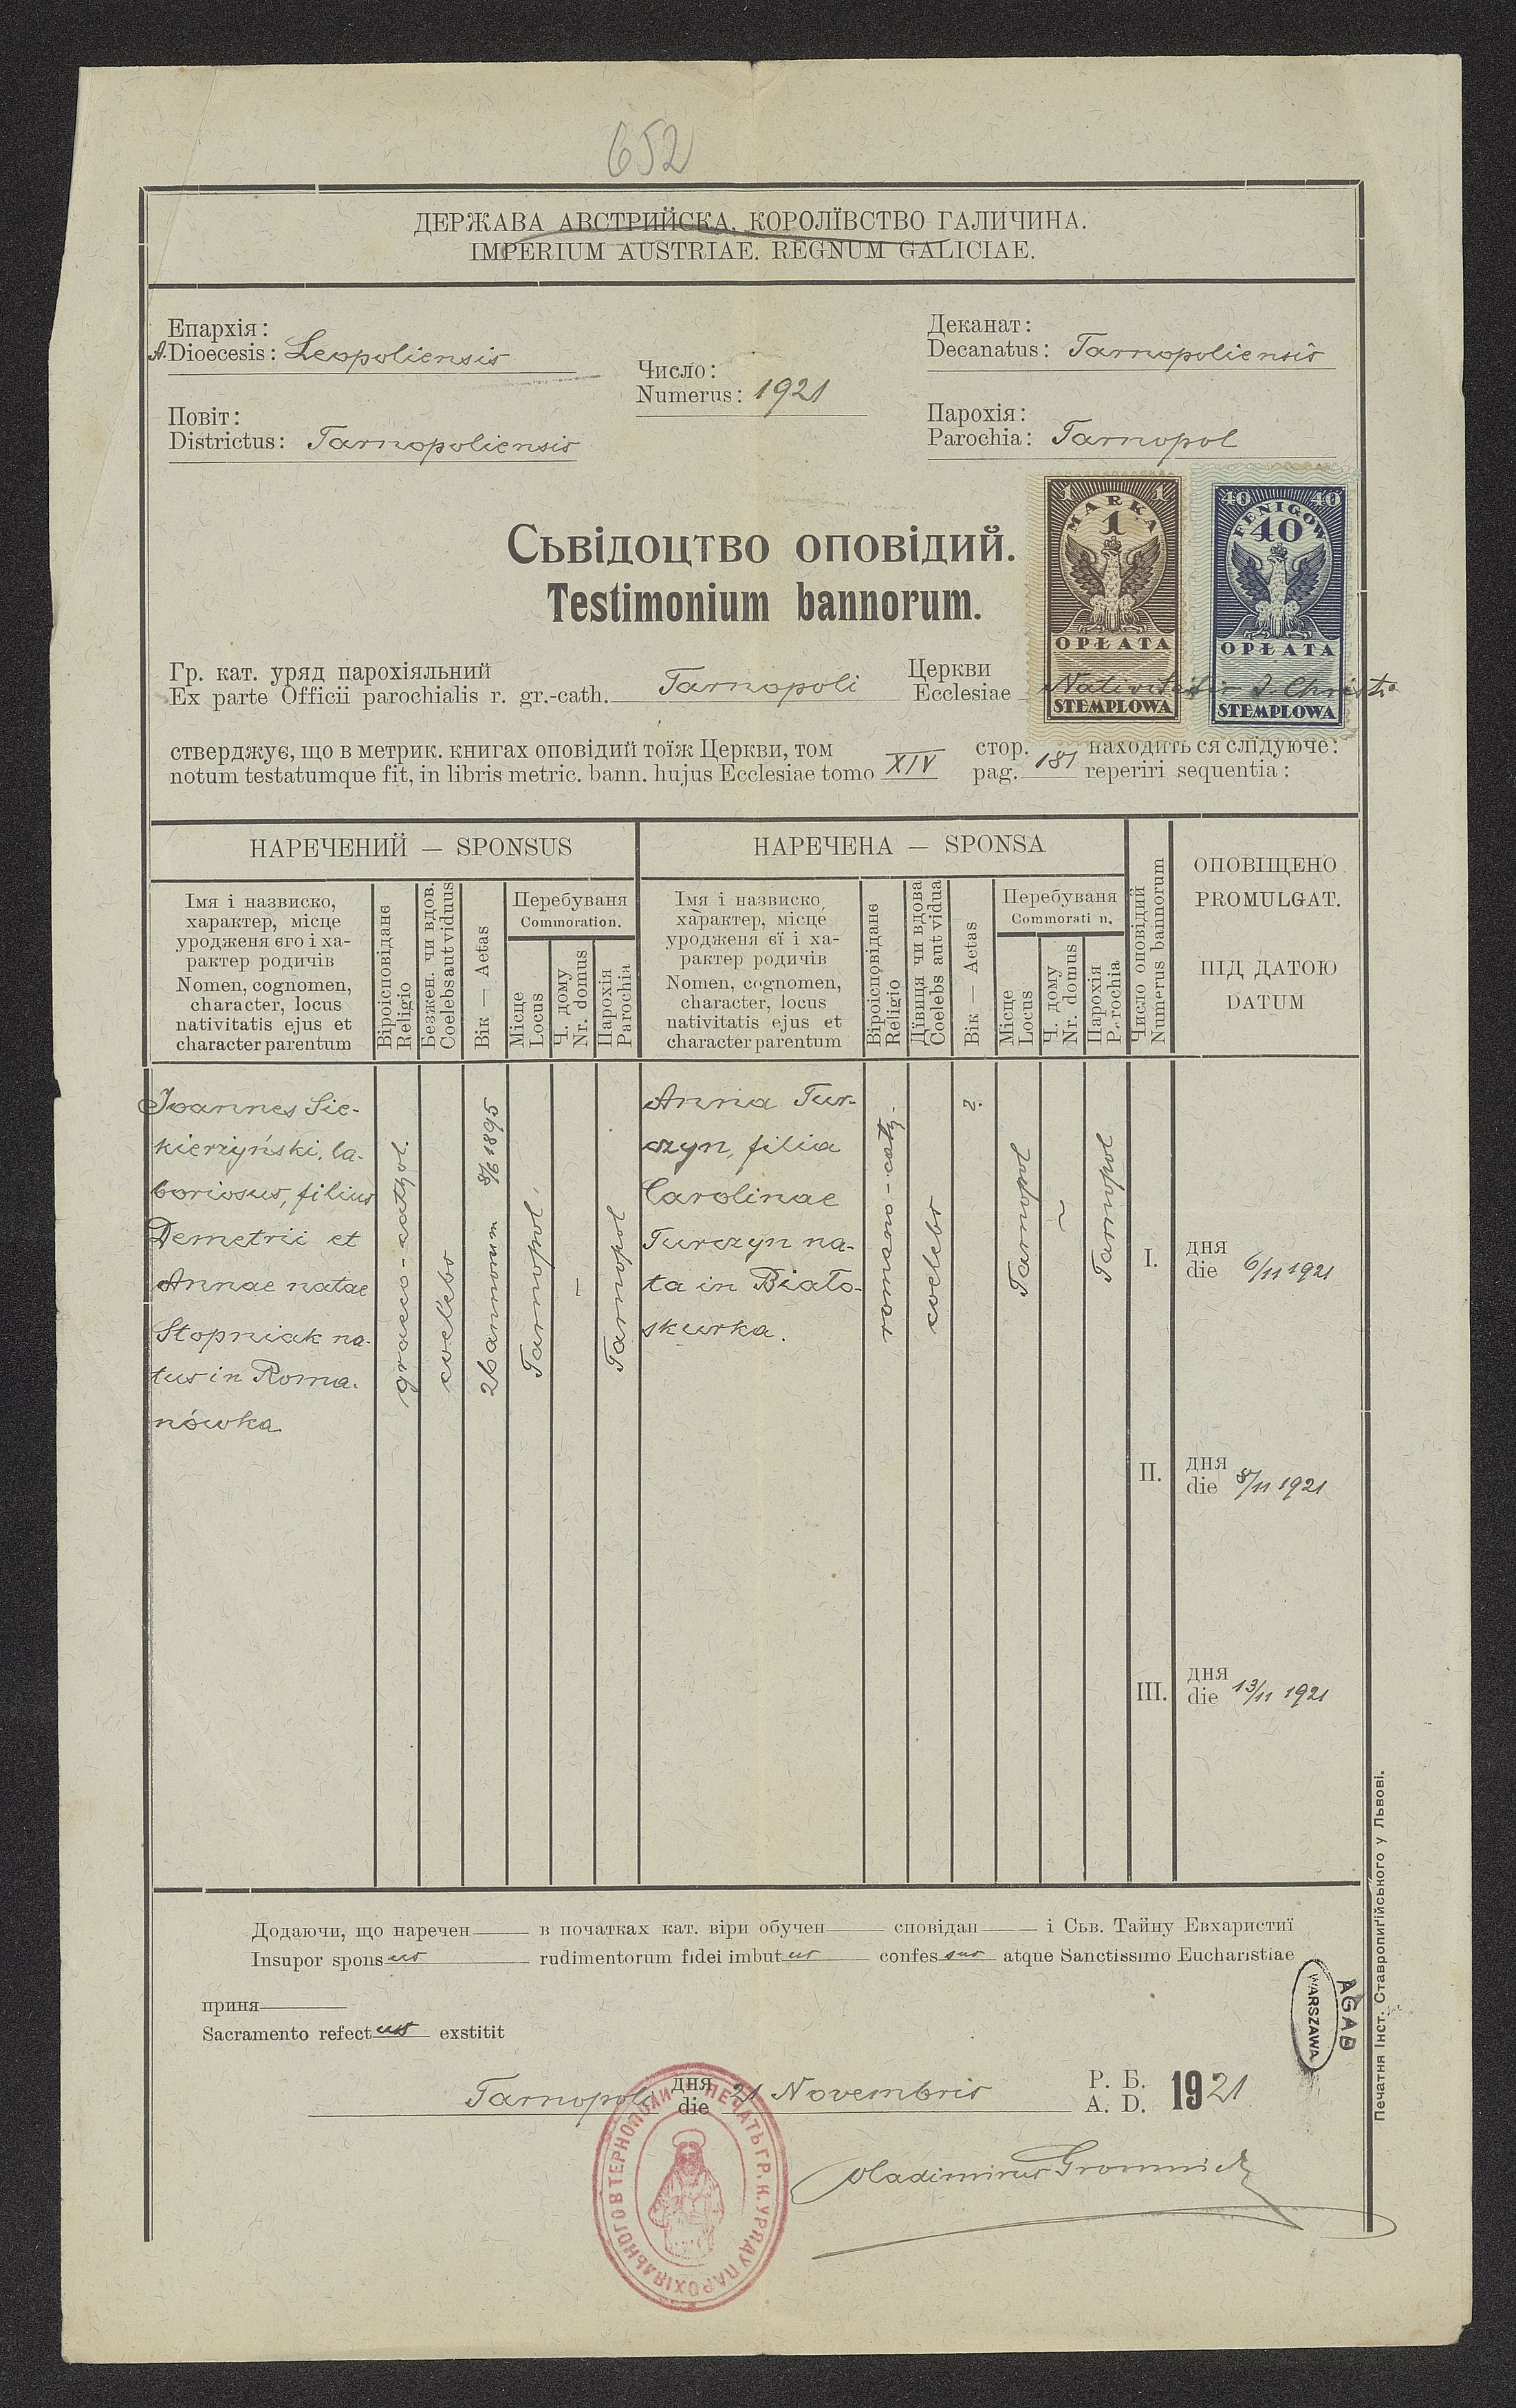 652
ДЕРЖАВА АВСТРИЙСКА. КОРОЛЇВСТВО ГАЛИЧИНА.
IMPERIUM AUSTRIAE. REGNUM GALICIAE.
Епархія:
A. Dioecesis: Leopoliensis
Число:
Numerus: 1921
Деканат:
Decanatus: Tarnopoliensis
Повіт:
Districtus: Tarnopoliensis
Парохія:
Parochia: Tarnopol
1 MARKA 1
1
OPŁATA
STEMPLOWA
40 FENIGÓW 40
40
OPŁATA
STEMPLOWA
Сьвідоцтво оповідий.
Testimonium bannorum.
Гр. кат. уряд парохіяльний Церкви
Ex parte Officii parochialis r. gr.-cath. Tarnopoli Ecclesiae Nativitatis J. Christi
стверджує, що в метрик. книгах оповідий тоїж Церкви, том стор. находить ся слїдуюче:
notum testatumque fit, in libris metric. bann. hujus Ecclesiae tomo XIV pag. 181 reperiri sequentia:
НАРЕЧЕНИЙ — SPONSUS
Імя і назвиско,
характер, місце
уродженя єго і ха-
рактер родичів
Nomen, cognomen,
character, locus
nativitatis ejus et
character parentum
Віроісповіданє
Religio
Безжен. чи вдов.
Coelebs aut viduus
Вік — Aetas
Перебуваня
Commoration.
Місце
Locus
Ч. дому
Nr. domus
Парохія
Parochia
НАРЕЧЕНА — SPONSA
Імя і назвиско
характер, місце
уродженя єї і ха-
рактер родичів
Nomen, cognomen,
character, locus
nativitatis ejus et
character parentum
Віроісповіданє
Religio
Дївиця чи вдова
Coelebs aut vidua
Вік — Aetas
Перебуваня
Commorati n.
Місце
Locus
Ч. дому
Nr. domus
Парохія
P. rochia
Число оповідий
Numerus bannorum
ОПОВІЩЕНО
PROMULGAT.
ПІД ДАТОЮ
DATUM
Joannes Sie-
kierzyński, la-
boriosus, filius
Demetrii et
Annae natae
Stopniak na-
tus in Roma-
nówka
graeco-cathol.
coelebs
26 annorum 8/6 1895
Tarnopol
-
Tarnopol
Anna Tur-
czyn, filia
Carolinae
Turczyn na-
ta in Biało-
skurka.
romano-cath.
coelebs
?.
Tarnopol
~
Tarnopol
I. дня
die 6/11 1921
II. дня
die 8/11 1921
III. дня
die 13/11 1921
Додаючи, що наречен в початках кат. віри обучен сповідан і Сьв. Тайну Евхаристиї
Insupor sponsus rudimentorum fidei imbutus confessus atque Sanctissimo Eucharistiae
приня
Sacramento refectus exstitit
дня Р. Б.
Tarnopoli die 21 Novembris A. D. 1921
Vladimirus Gromnicki
ПЕЧАТЬ ГР. К. УРЯДУ ПАРОХІЯЛЬНОГО В ТЕРНОПОЛИ
AGAD
WARSZAWA
Печатня Інст. Ставропиґійського у Львові.